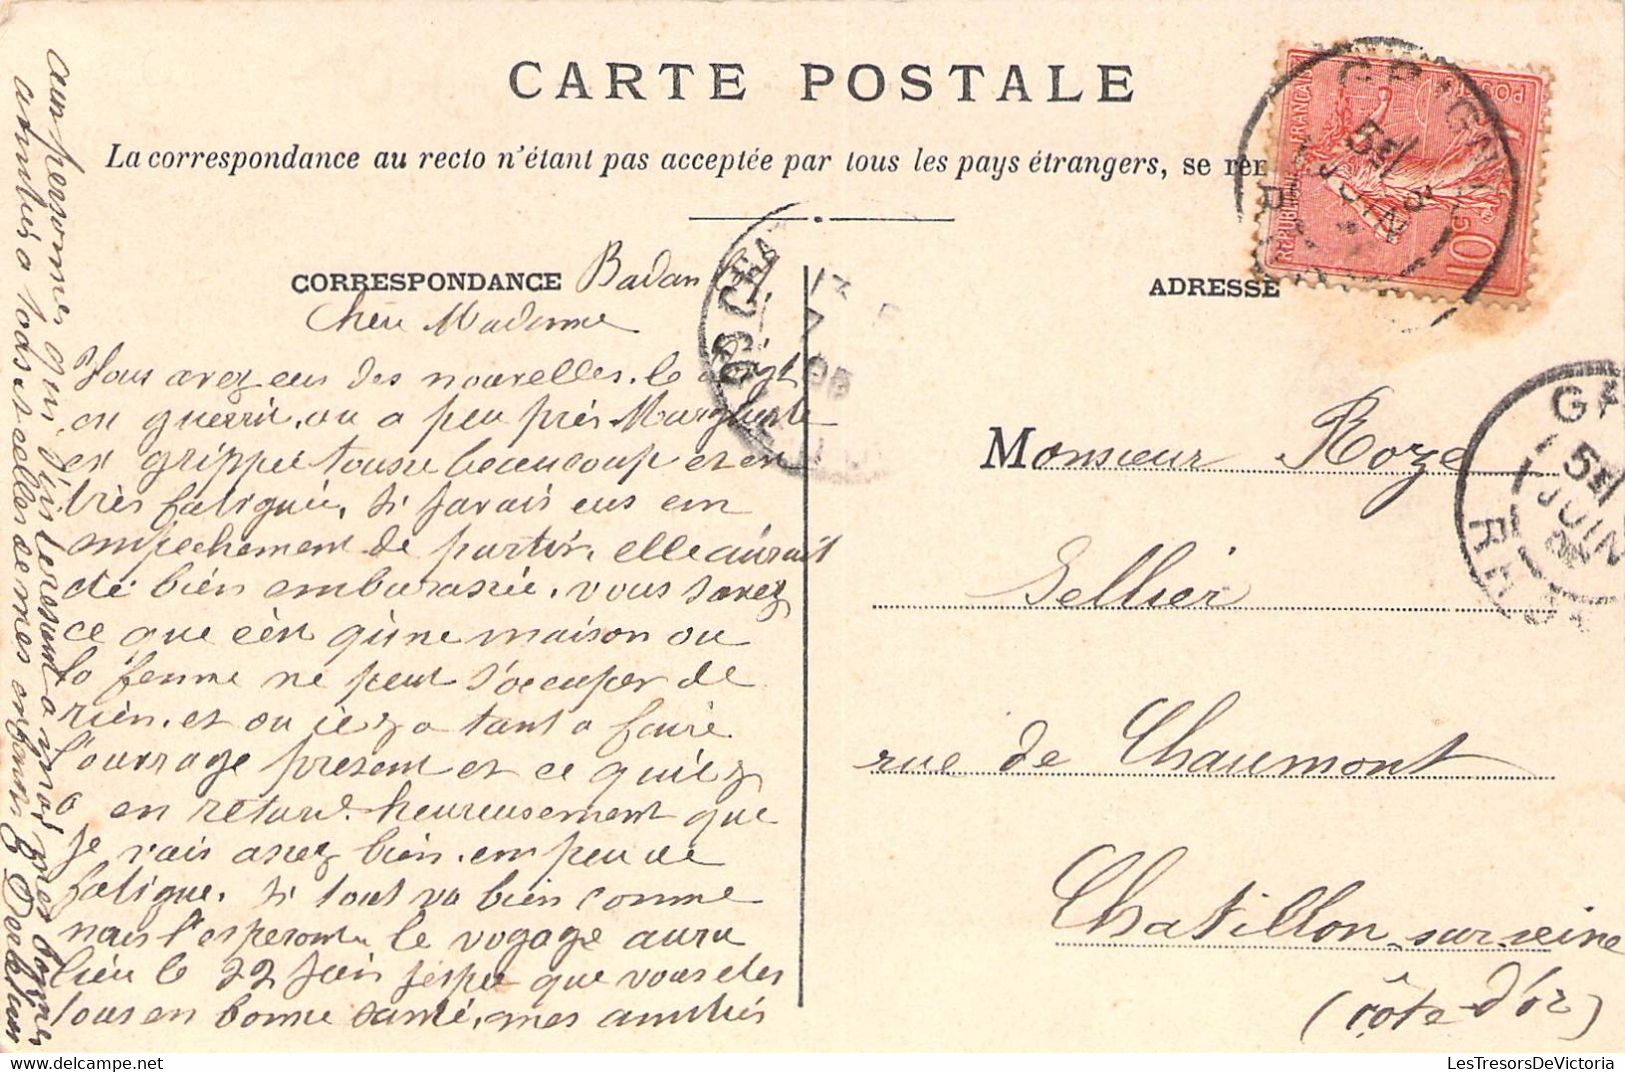 CARTE POSTALE
La correspondance au recto n'étant pas acceptée par tous les pays étrangers, se ren
CORRESPONDANCE
ADRESSE
Badan
Chère Madame
Vous avez eus des nouvelles. le doigt
en guerrit, ou a peu près. Marguerite
et grippée tousse beaucoup et et
très fatiguée, si javais eus em
empechement de partir, elle aurait
été bien embarassée, vous savez
ce que cèst qu'une maison ou
la femme ne peut s'occuper de
rien. et ou içi y a tant a faire
l'ouvrage present et ce qu'il y
a en retard. heureusement que
je vais assez bien, em peu de
fatigue. si tout va bien comme
nous l'esperont le voyage aura
lieu le 22 juin jéspere que vous etes
tous en bonne santé, mes amitiés
aux personnes qui s'interessent a moi mes bonnes
amitiés a vous et celles de mes enfants
Monsieur Roze
Sellier
rue de Chaumont
Chatillon sur seine
(côte d'or)
REPUBLIQUE FRANCAISE
POSTES
10c
GRIGNY
5E
JUIN
RHONE
5E
JUIN
LesTresorsDeVictoria
LesTresorsDeVictoria.com